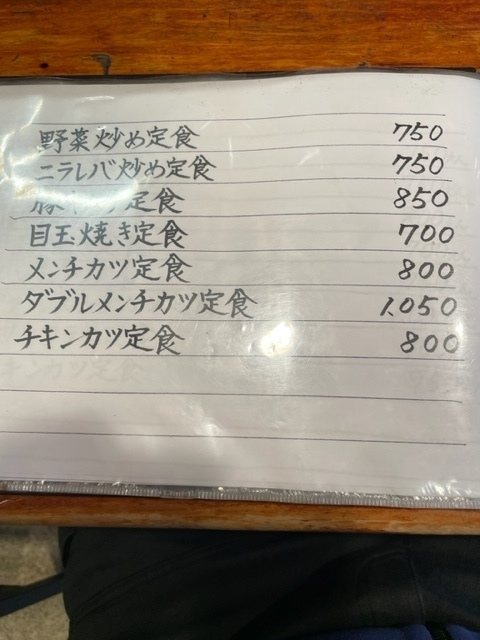 野菜炒め定食 750
ニラレバ炒め定食 750
定食 850
目玉焼き定食 700
メンチカツ定食 800
ダブルメンチカツ定食 1,050
チキンカツ定食 800